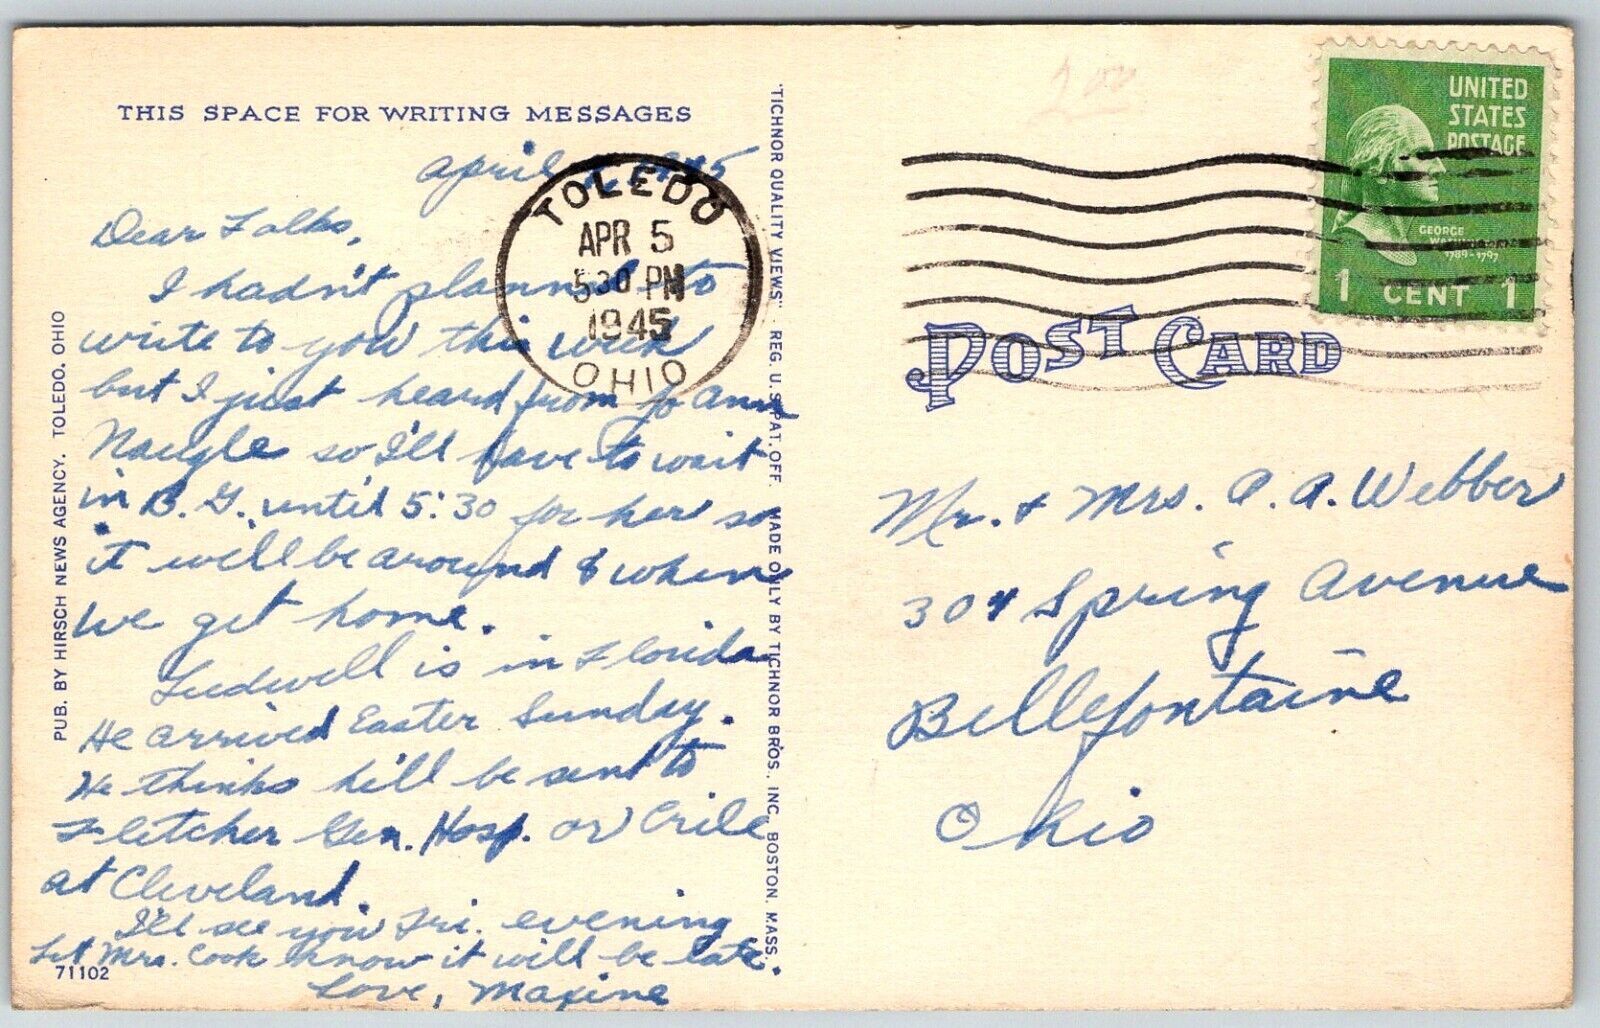 THIS SPACE FOR WRITING MESSAGES
April 1945
Dear Folks,
I hadn't planned to
write to you this week
but I just heard from Jo Ann
Naugle so I'll have to wait
in B. G. until 5:30 for her so
it will be around 8 when
we get home.
Ludwell is in Florida
He arrived Easter Sunday.
He thinks he'll be sent to
Fletcher Gen. Hosp. or Crile
at Cleveland.
I'll see you Fri. evening
Let Mrs. Cook know it will be late.
Love, Maxine
71102
PUB. BY HIRSCH NEWS AGENCY. TOLEDO. OHIO
"TICHNOR QUALITY VIEWS" REG. U. S. PAT. OFF. MADE ONLY BY TICHNOR BROS. INC. BOSTON. MASS.
TOLEDO
APR 5
530 PM
1945
OHIO
2.00
UNITED
STATES
POSTAGE
GEORGE
WASHINGTON
1789-1797
1 CENT 1
POST CARD
Mr. & Mrs. A. A. Webber
304 Spring Avenue
Bellefontaine
Ohio